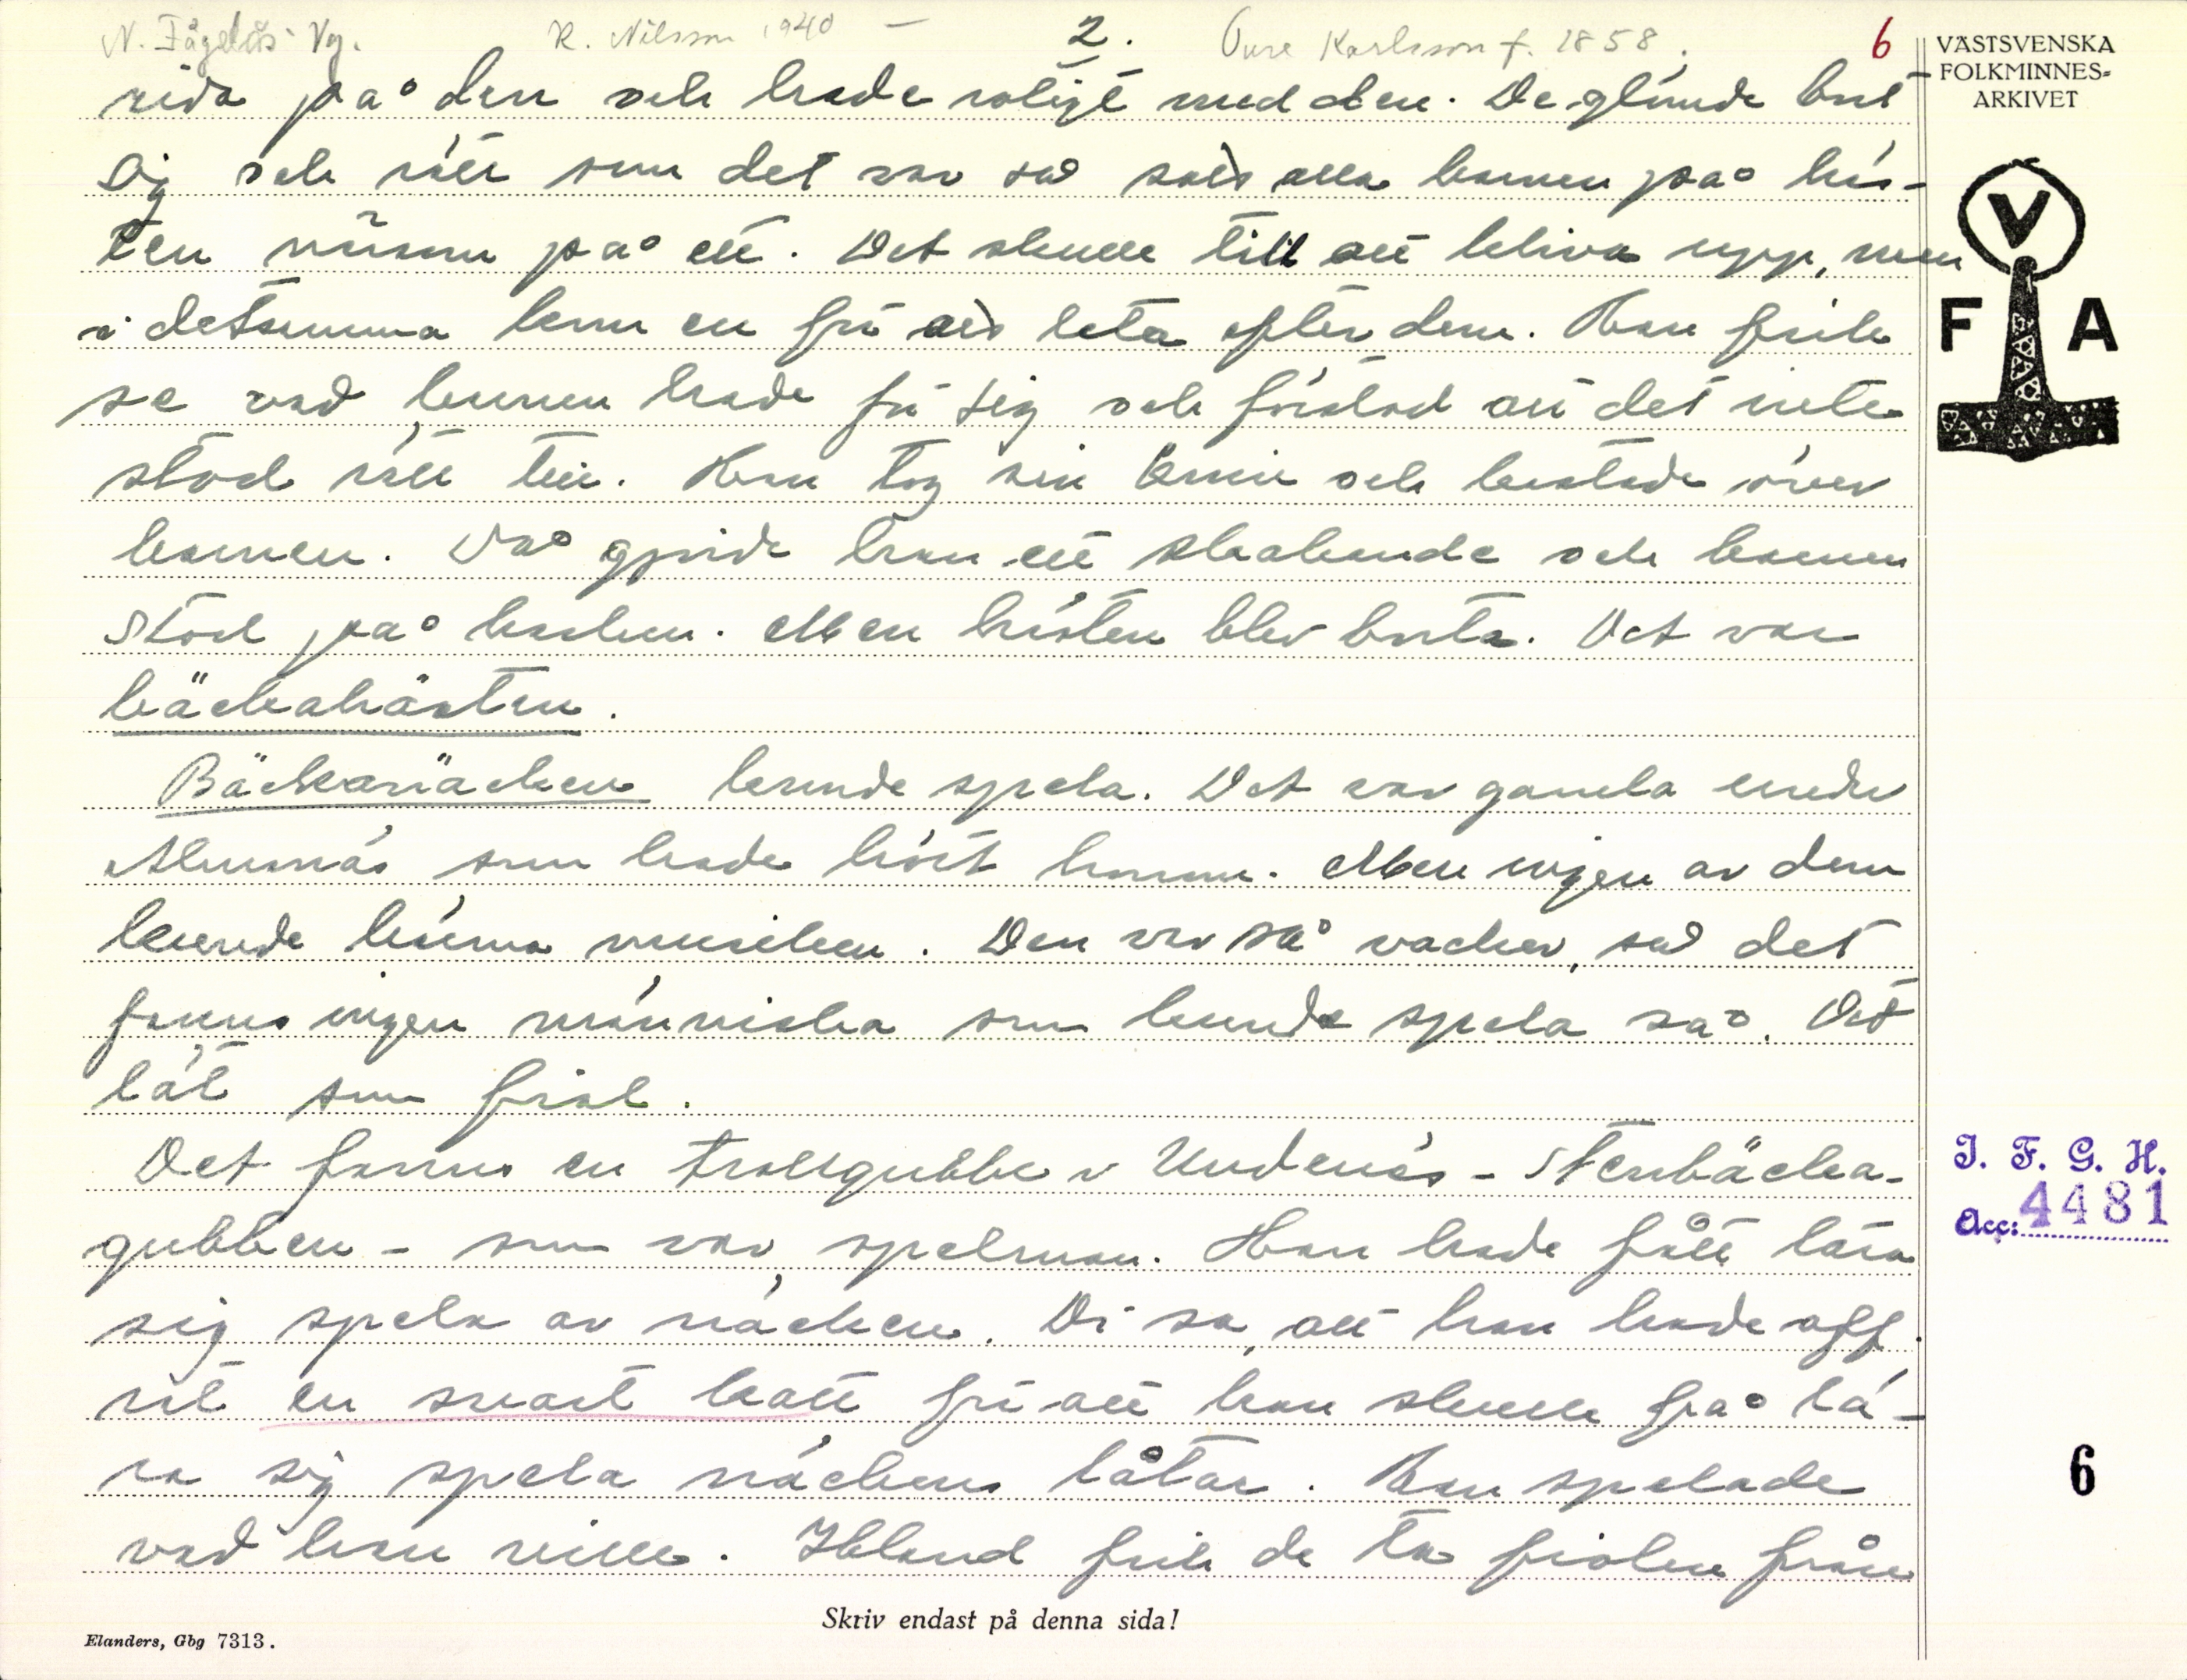 N. Fågelås Vg. R. Nilsson 1940 — 2. Ture Karlsson f. 1858. 6
VÄSTSVENSKA
FOLKMINNES-
ARKIVET
rida på den och hade roligt med den. De glömde bort
sig och rätt som det var så satt alla barnen på häs-
ten nūsom på ett. Det skulle till att kliva upp, men
i detsamma kom en för att leta efter dem. Han fick
se vad barnen hade för sig och förstod att det inte
stod rätt till. Han tog sin kniv och kastade över
barnen. Då gjorde han ett skakande och barnen
stod på backen. Men hästen blev borta. Det var
bäckahästen.
Bäckanäcken kunde spela. Det var gamla under
Almnäs som hade hört honom. Men ingen av dem
kunde lärna musiken. Den var så vacker, så det
fanns ingen människa som kunde spela så. Det
lät som fiol.
Det fanns en trollgubbe i Undenäs - Stenbäcka-
gubben - som var spelman. Han hade fått lära
sig spela av näcken. Di sa, att han hade off-
rat en svart katt för att han skulle få lä-
ra sig spela näckens låtar. Han spelade
vad han ville. Ibland fick de ta fiolen från
V
F A
I. F. G. H.
Acc: 4481
6
Skriv endast på denna sida!
Elanders, Gbg 7313.